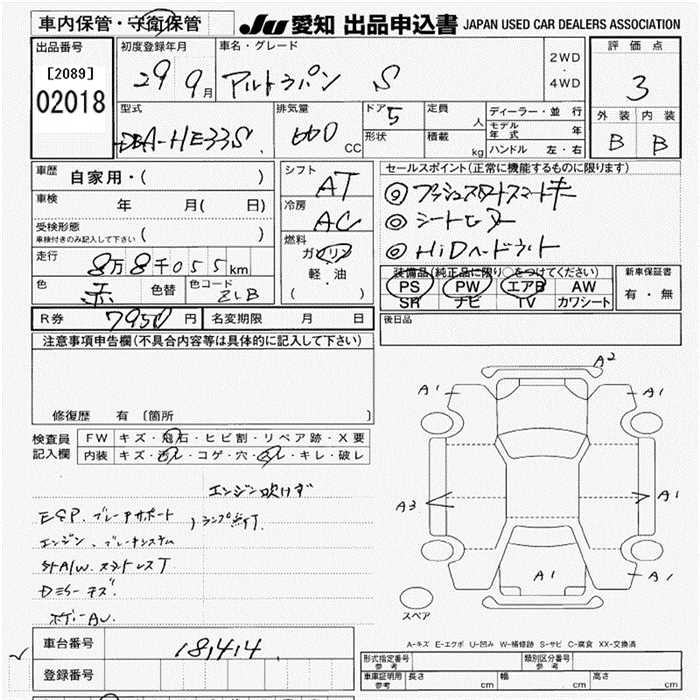 車内保管・守衛保管
JU 愛知 出品申込書 JAPAN USED CAR DEALERS ASSOCIATION
出品番号
[2089]
02018
初度登録年月
29 9月
車名・グレード
アルトラパン S
2WD
・
4WD
評価点
3
外装 内装
B B
型式
DBA-HE33S
排気量
660 CC
ドア 5
形状
定員 人
積載 kg
ディーラー・並行
モデル年式 年
ハンドル 左・右
車歴 自家用・( )
車検 年 月( 日)
受検形態
車検付きのみ記入して下さい ( )
走行
8万8千055km
色 赤 色替
色コード ZLB
シフト
AT
冷房
AC
燃料
ガソリン
軽・油
( )
セールスポイント(正常に機能するものに限ります)
◎プッシュスタートスマートキー
◎シートヒーター
◎HiDヘッドライト
装備品(純正品に限り○をつけてください)
PS PW エアB AW
SR ナビ TV カワシート
新車保証書
有・無
R券 7950円 名変期限 月 日
後日品
注意事項申告欄(不具合内容等は具体的に記入して下さい)
修復歴 有〔箇所 〕
検査員記入欄
FW キズ・飛石・ヒビ割・リペア跡・X要
内装 キズ・汚レ・コゲ・穴・スレ・キレ・破レ
エンジン吹けず
ESP. ブレーキサポート
ランプ点灯
エンジン、ブレーキシステム
ステアリングスイッチスレ
ボディーAU.
A2
A1
A1
A3
A1
A1
A1
スペア
A-キズ E-エクボ U-凹み W-補修跡 S-サビ C-腐食 XX-交換済
車台番号 181414
登録番号
形式指定番号 参考
類別区分番号 参考
車庫証明用 参考 長さ cm 幅 cm 高さ cm